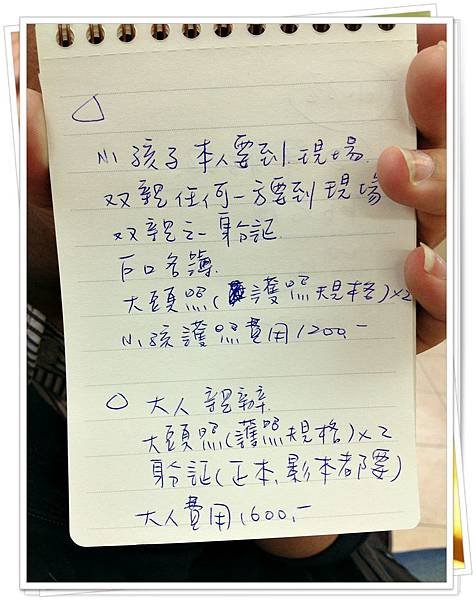 小孩子本人要到現場.
双親任何一方要到現場
双親之一身証.
戶口名簿.
大頭照(護照規格)×2
小孩護照費用1200,-
大人親辦.
大頭照(護照規格)×2
身証(正本,影本都要)
大人費用1600,-